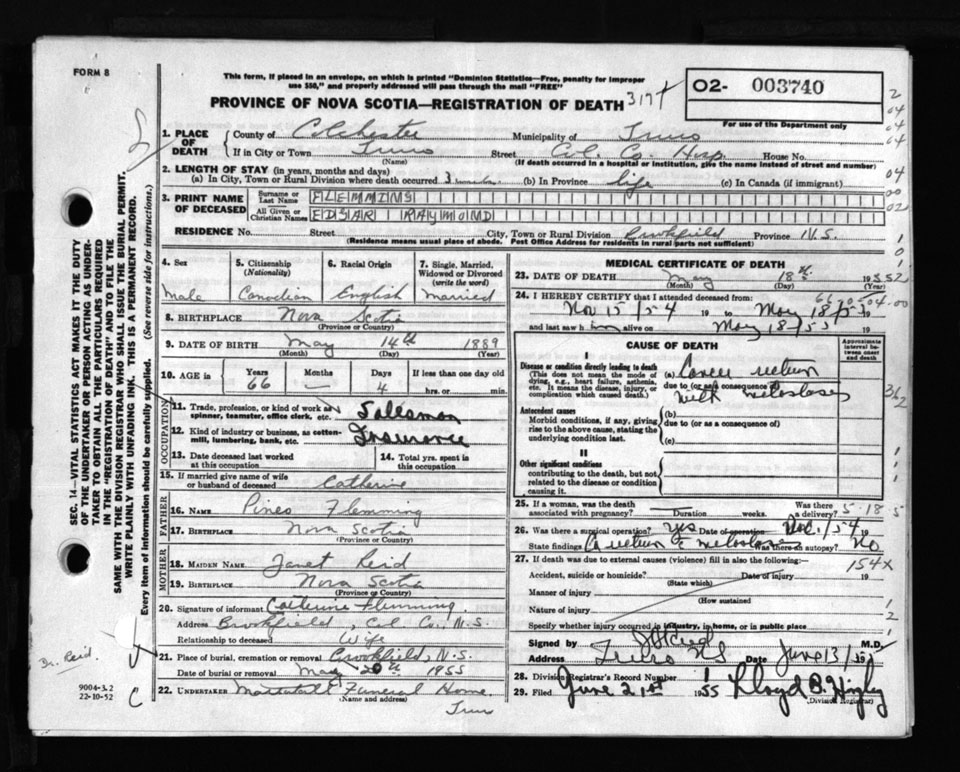 FORM 8
This form, if placed in an envelope, on which is printed "Dominion Statistics—Free, penalty for improper
use $50," and properly addressed will pass through the mail "FREE"
PROVINCE OF NOVA SCOTIA—REGISTRATION OF DEATH
O2- 003740
For use of the Department only
1. PLACE OF DEATH County of Colchester Municipality of Truro
If in City or Town Truro (Name) Street Col. Co. Hosp. House No.
(If death occurred in a hospital or institution, give the name instead of street and number)
2. LENGTH OF STAY (in years, months and days)
(a) In City, Town or Rural Division where death occurred 3 (b) In Province life (c) In Canada (if immigrant)
3. PRINT NAME OF DECEASED Surname or Last Name FLEMMING
All Given or Christian Names EDGAR RAYMOND
RESIDENCE No. Street City, Town or Rural Division Brookfield Province N.S.
(Residence means usual place of abode. Post Office Address for residents in rural parts not sufficient)
4. Sex 5. Citizenship (Nationality) 6. Racial Origin 7. Single, Married, Widowed or Divorced (write the word)
Male Canadian English Married
8. BIRTHPLACE Nova Scotia
(Province or Country)
9. DATE OF BIRTH May 14th 1889
(Month) (Day) (Year)
10. AGE in Years Months Days If less than one day old
66 — 4 hrs. or min.
OCCUPATION
11. Trade, profession, or kind of work as spinner, teamster, office clerk, etc. Salesman
12. Kind of industry or business, as cotton-mill, lumbering, bank, etc. Insurance
13. Date deceased last worked at this occupation 14. Total yrs. spent in this occupation
15. If married give name of wife or husband of deceased Catherine
FATHER
16. Name Flemming
17. BIRTHPLACE Nova Scotia
(Province or Country)
MOTHER
18. MAIDEN NAME Janet Reid
19. BIRTHPLACE Nova Scotia
(Province or Country)
20. Signature of informant Catherine Flemming
Address Brookfield, Col. Co. N.S.
Relationship to deceased Wife
21. Place of burial, cremation or removal Brookfield, N.S.
Date of burial or removal May 20th 1955
22. UNDERTAKER Funeral Home
(Name and address)
Truro
MEDICAL CERTIFICATE OF DEATH
23. DATE OF DEATH May 18th 1955
(Month) (Day)
24. I HEREBY CERTIFY that I attended deceased from:
Nov 15/54 19 to May 18/55 19
and last saw him alive on May 18/55 19
CAUSE OF DEATH
Approximate interval between onset and death
I
Disease or condition directly leading to death (a)
(This does not mean the mode of dying, e.g., heart failure, asthenia, etc. It means the disease, injury, or complication which caused death.)
due to (or as a consequence of)
with
Antecedent causes (b)
Morbid conditions, if any, giving rise to the above cause, stating the underlying condition last.
due to (or as a consequence of)
(c)
II
Other significant conditions
contributing to the death, but not related to the disease or condition causing it.
25. If a woman, was the death associated with pregnancy? Duration weeks. Was there a delivery?
26. Was there a surgical operation? Yes Date of operation Dec. 1/54 19
State findings Was there an autopsy? No
27. If death was due to external causes (violence) fill in also the following:—
Accident, suicide or homicide? (State which) Date of injury 19
154X
Manner of injury
(How sustained)
Nature of injury
Specify whether injury occurred in industry, in home, or in public place
Signed by M.D.
Address Truro NS Date June 13/1955
28. Division Registrar's Record Number
29. Filed June 21st 1955 Lloyd B.
(Division Registrar)
Dr. Reid.
9004-3.2
22-10-52
SEC. 14—VITAL STATISTICS ACT MAKES IT THE DUTY
OF THE UNDERTAKER OR PERSON ACTING AS UNDER-
TAKER TO OBTAIN ALL THE PARTICULARS REQUIRED
IN THE "REGISTRATION OF DEATH" AND TO FILE THE
SAME WITH THE DIVISION REGISTRAR WHO SHALL ISSUE THE BURIAL PERMIT.
WRITE PLAINLY WITH UNFADING INK. THIS IS A PERMANENT RECORD.
Every item of information should be carefully supplied. (See reverse side for instructions.)